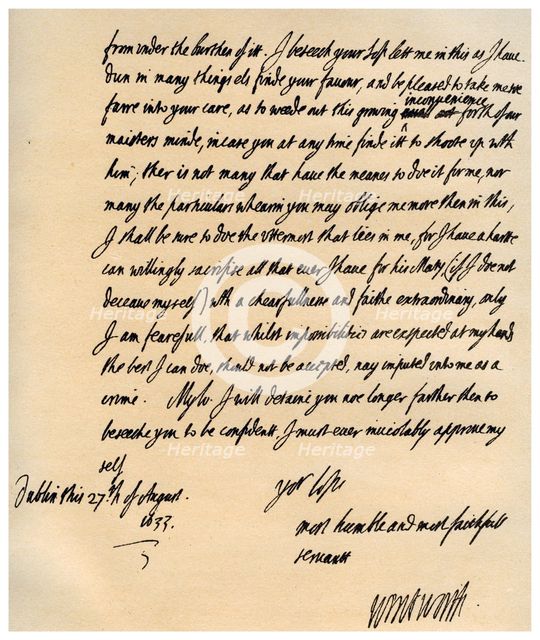 from under the burthen of itt. I beseech your Lo:pp lett me in this as I have
dun in many things els finde your favour, and be pleased to take me soe
farre into your care, as to weede out this growing inconvenience forth of our
maisters minde, incase you at any time finde itt to shoote up with
him; ther is not many that have the means to doe it for me, nor
many the particulars whearin you may oblige me more then in this,
I shall be sure to doe the uttermost that lies in me, for I have a harte
can willingly sacrifise all that ever I have for his Maty (if I doe not
deceave my self) with a chearfullness and faithe extraordinary, only
I am fearefull, that whilst impossibilities are expected at my hands
the best I can doe, should not be accepted, nay imputed unto me as a
crime. My lo. I will detaine you noe longer farther then to
beseeche you to be confident, I must ever inviolably approve my
self
Dublin this 27th of August.
1633.
yor lopps
most humble and most faithfull
servant
Wentworth.
Heritage
Heritage
Heritage
Heritage
Heritage
Heritage